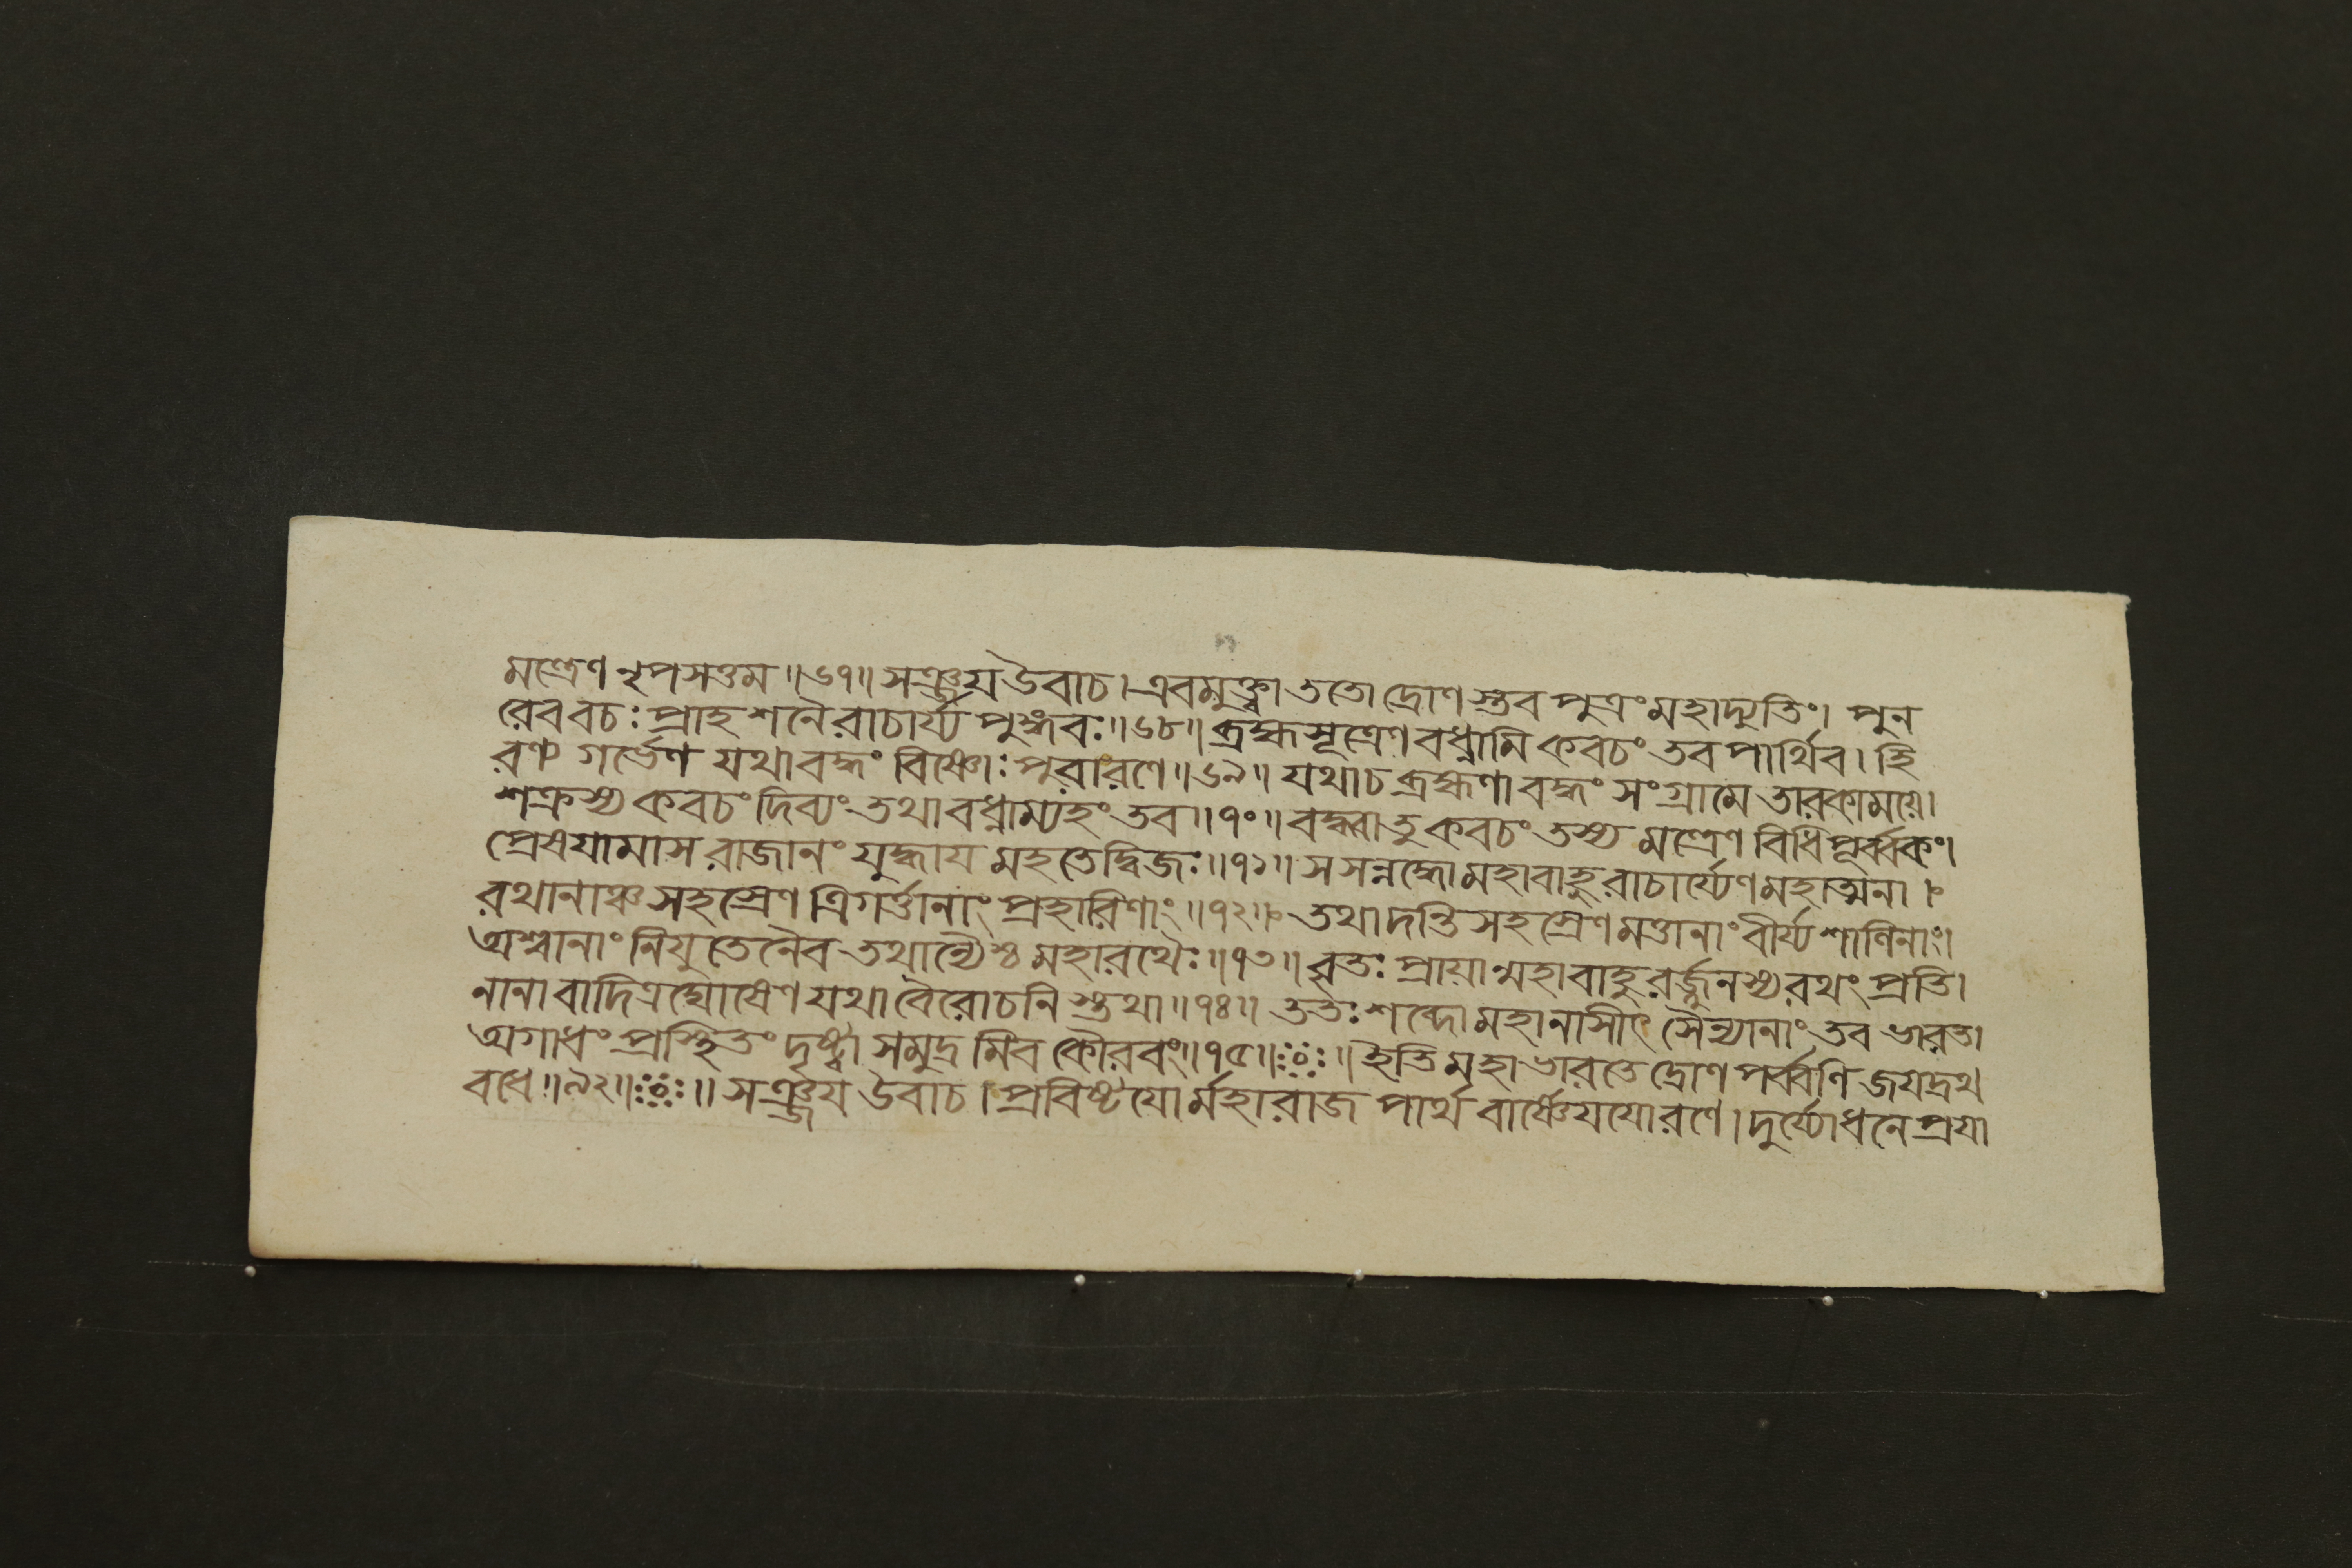 মন্ত্রেণ নৃপসত্তম॥৬৭॥ সঞ্জয় উবাচ। এবমুক্ত্বা ততো দ্রোণ স্তব পুত্রং মহাদ্যুতিং। পুন
রেব বচঃ প্রাহ শনৈরাচার্য্য পুঙ্গবঃ॥৬৮॥ ব্রহ্মসূত্রেণ বধ্নামি কবচং তব পার্থিব। হি
রণ্য গর্ভেণ যথা বদ্ধং বিষ্ণোঃ পুরা রণে॥৬৯॥ যথা চ ব্রহ্মণা বদ্ধং সংগ্রামে তারকাময়ে।
শক্রস্য কবচং দিব্যং তথা বধ্নাম্যহং তব॥৭০॥ বদ্ধ্বা তু কবচং তস্য মন্ত্রেণ বিধিপূর্ব্বকং।
প্রেষয়ামাস রাজানং যুদ্ধায় মহতে দ্বিজঃ॥৭১॥ স সন্নদ্ধো মহাবাহুরাচার্য্যেণ মহাত্মনা।
রথানাঞ্চ সহস্রেণ ত্রিগর্ত্তানাং প্রহারিণাং॥৭২॥ তথা দন্তি সহস্রেণ মত্তানাং বীর্য্য শালিনাং।
অশ্বানাং নিযুতেনৈব তথান্যৈশ্চ মহারথৈঃ॥৭৩॥ বৃতঃ প্রায়ান্মহাবাহুরর্জ্জুনস্য রথং প্রতি।
নানা বাদিত্র ঘোষেণ যথা বৈরোচনি স্তথা॥৭৪॥ ততঃ শব্দো মহানাসীৎ সৈন্যানাং তব ভারত।
অগাধং প্রস্থিতং দৃষ্ট্বা সমুদ্র মিব কৌরবং॥৭৫॥ ॥ ইতি মহাভারতে দ্রোণ পর্ব্বণি জয়দ্রথ
বধে॥৯২॥ ॥ সঞ্জয় উবাচ। প্রবিষ্টয়োর্মহারাজ পার্থ বার্ষ্ণেয়য়ো রণে। দুর্য্যোধনে প্রয়া